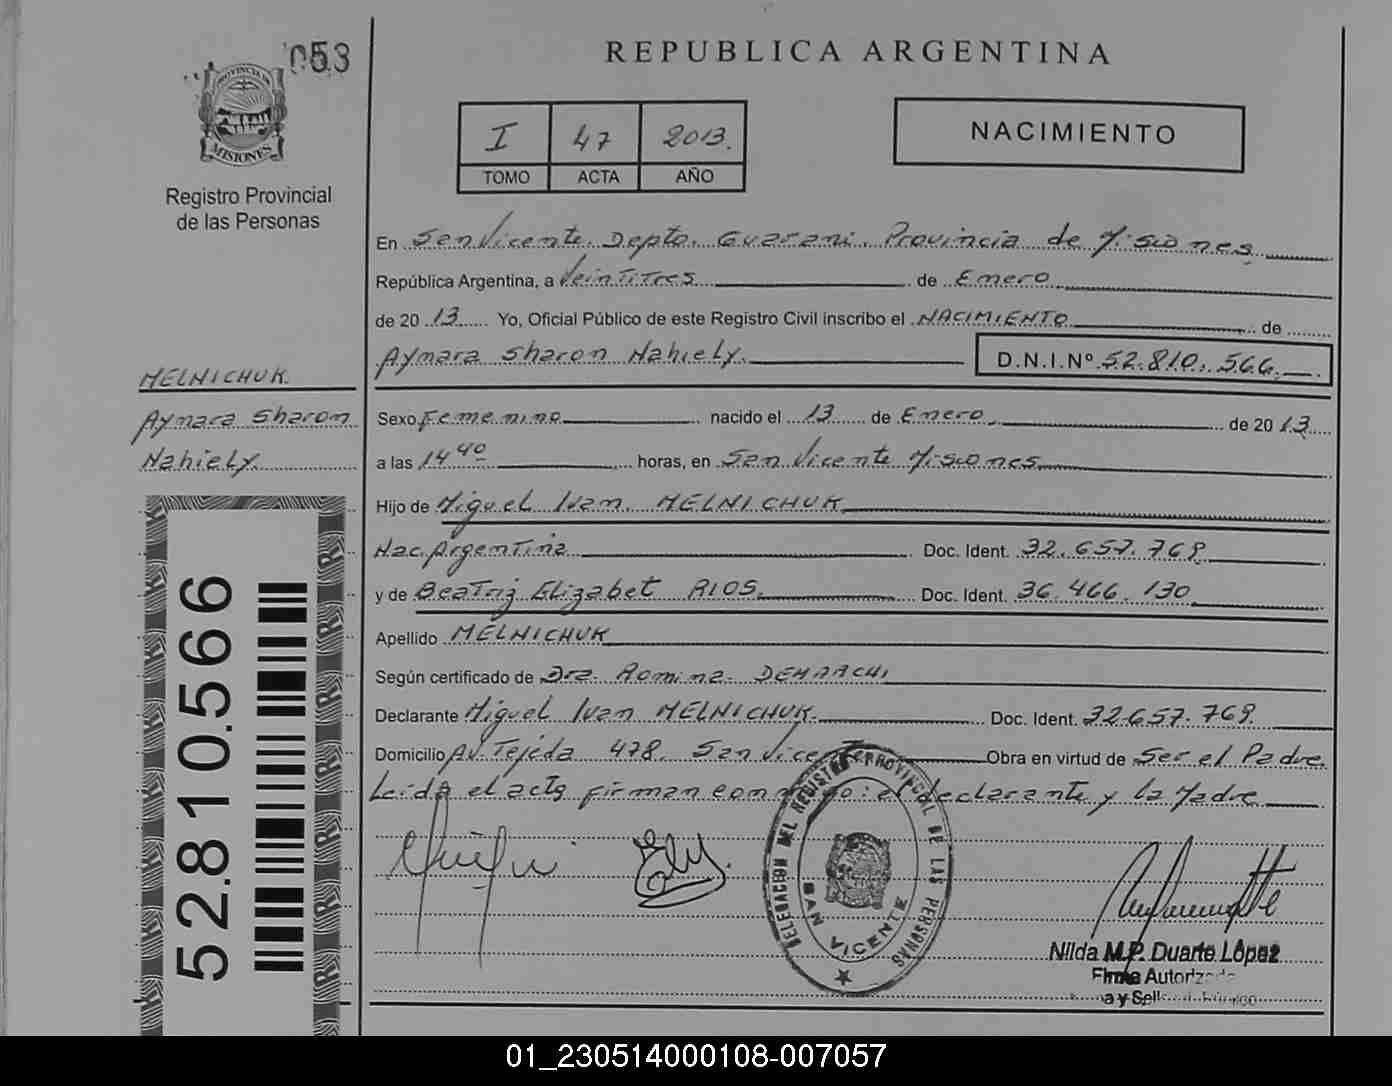 053
PROVINCIA DE
MISIONES
Registro Provincial
de las Personas
REPUBLICA ARGENTINA
I 47 2013.
TOMO ACTA AÑO
NACIMIENTO
En San Vicente. Depto. Guarani. Provincia de Misiones
República Argentina, a Veintitres de Enero
de 2013 Yo, Oficial Público de este Registro Civil inscribo el NACIMIENTO de
Aymara Sharon Nahiely. D.N.I.Nº 52.810.566
MELNICHUK.
Aymara Sharon
Nahiely
Sexo Femenino nacido el 13 de Enero de 2013
a las 14 40 horas, en San Vicente Misiones
Hijo de Miguel Ivan MELNICHUK
Nac. Argentina Doc. Ident. 32.657.769
y de Beatriz Elizabet RIOS. Doc. Ident. 36.466.130
Apellido MELNICHUK
Según certificado de Dra. Romina DEMARCHI
Declarante Miguel Ivan MELNICHUK Doc. Ident. 32.657.769
Domicilio Av. Tejeda 478. San Vicente Obra en virtud de Ser el Padre
Leida el acta firman conmigo: el declarante y la Madre
52.810.566
DELEGACION DEL REGISTRO PROVINCIAL DE LAS PERSONAS
SAN VICENTE
Nilda M.P. Duarte López
Firma Autorizada
01_230514000108-007057